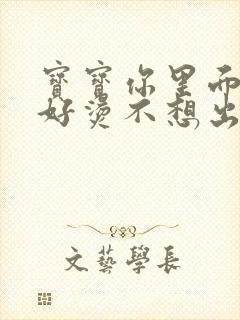 寶寶你里面
好燙不想出
文藝學長